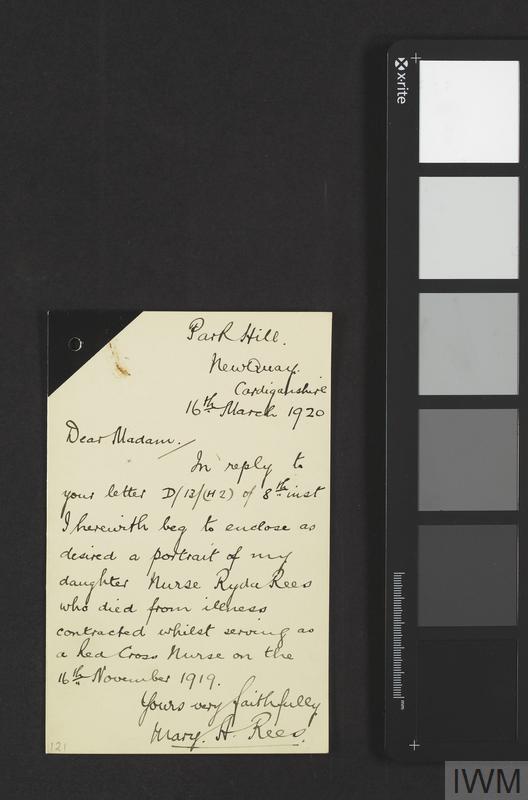 x-rite
Park Hill.
NewQuay.
Cardiganshire
16th March 1920
Dear Madam.
In reply to
your letter D/13/(H2) of 8th inst
I herewith beg to enclose as
desired a portrait of my
daughter Nurse Ryda Rees
who died from illness
contracted whilst serving as
a Red Cross Nurse on the
16th November 1919.
Yours very faithfully
Mary. A. Rees.
121
mm
IWM